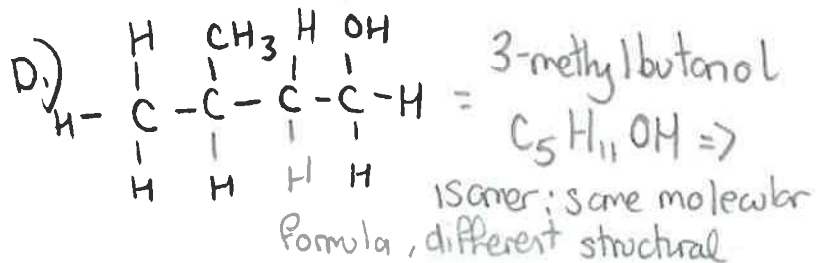 H CH3 H OH
D.) H- C - C - C - C - H = 3-methylbutanol
H H H H
C5H11OH =>
isomer: same molecular
formula, different structural